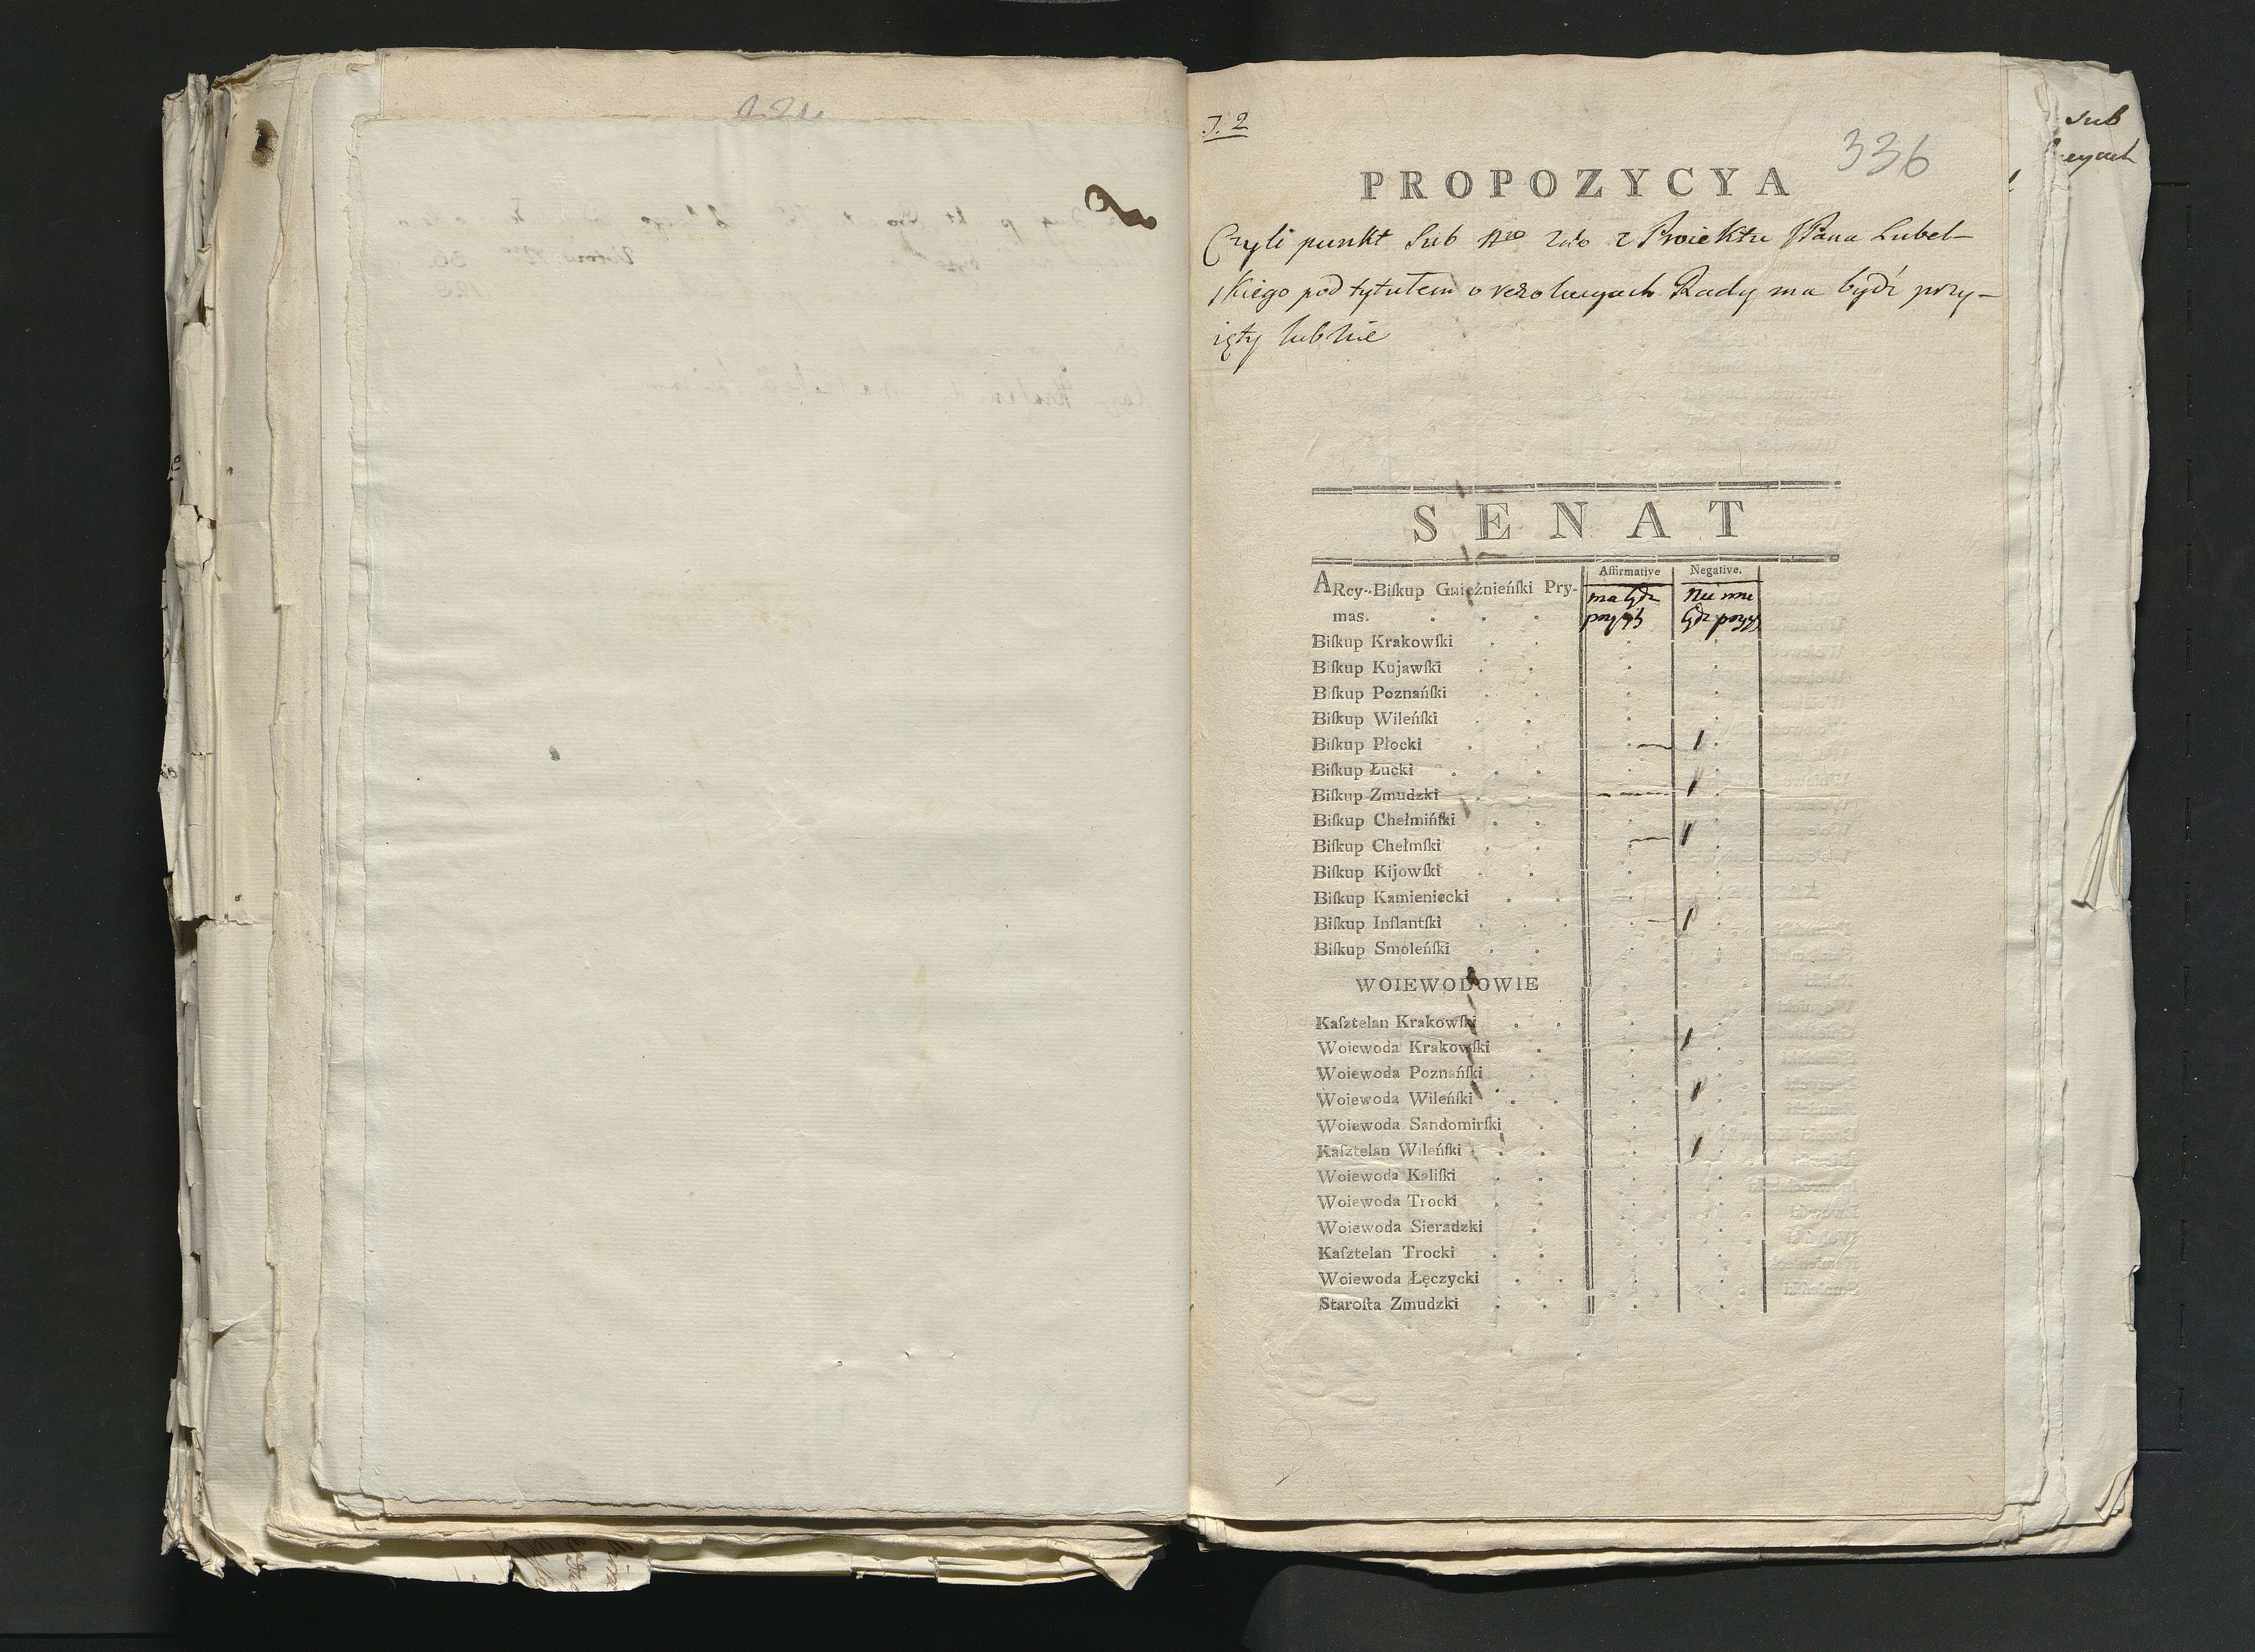 J. 2
336
PROPOZYCYA
Czyli punkt sub Nro 2do z Proiektu JPana Lubel-
skiego pod tytułem o rezolucyach Rady ma bydź przy-
ięty lub nie
SENAT
Affirmative Negative.
ARcy-Biſkup Gnieźnieńſki Pry- ma bydz Nie ma
mas. przyięty bydz przyięty
Biſkup Krakowſki
Biſkup Kujawſki
Biſkup Poznańſki
Biſkup Wileńſki
Biſkup Płocki — 1
Biſkup Łucki
Biſkup Zmudzki — 1
Biſkup Chełmińſki
Biſkup Chełmſki — 1
Biſkup Kijowſki
Biſkup Kamieniecki
Biſkup Inflantſki — 1
Biſkup Smoleńſki
WOIEWODOWIE
Kaſztelan Krakowſki
Woiewoda Krakowſki 1
Woiewoda Poznańſki
Woiewoda Wileńſki 1
Woiewoda Sandomirſki
Kaſztelan Wileńſki 1
Woiewoda Kaliſki
Woiewoda Trocki
Woiewoda Sieradzki
Kaſztelan Trocki
Woiewoda Łęczycki
Staroſta Zmudzki
sub